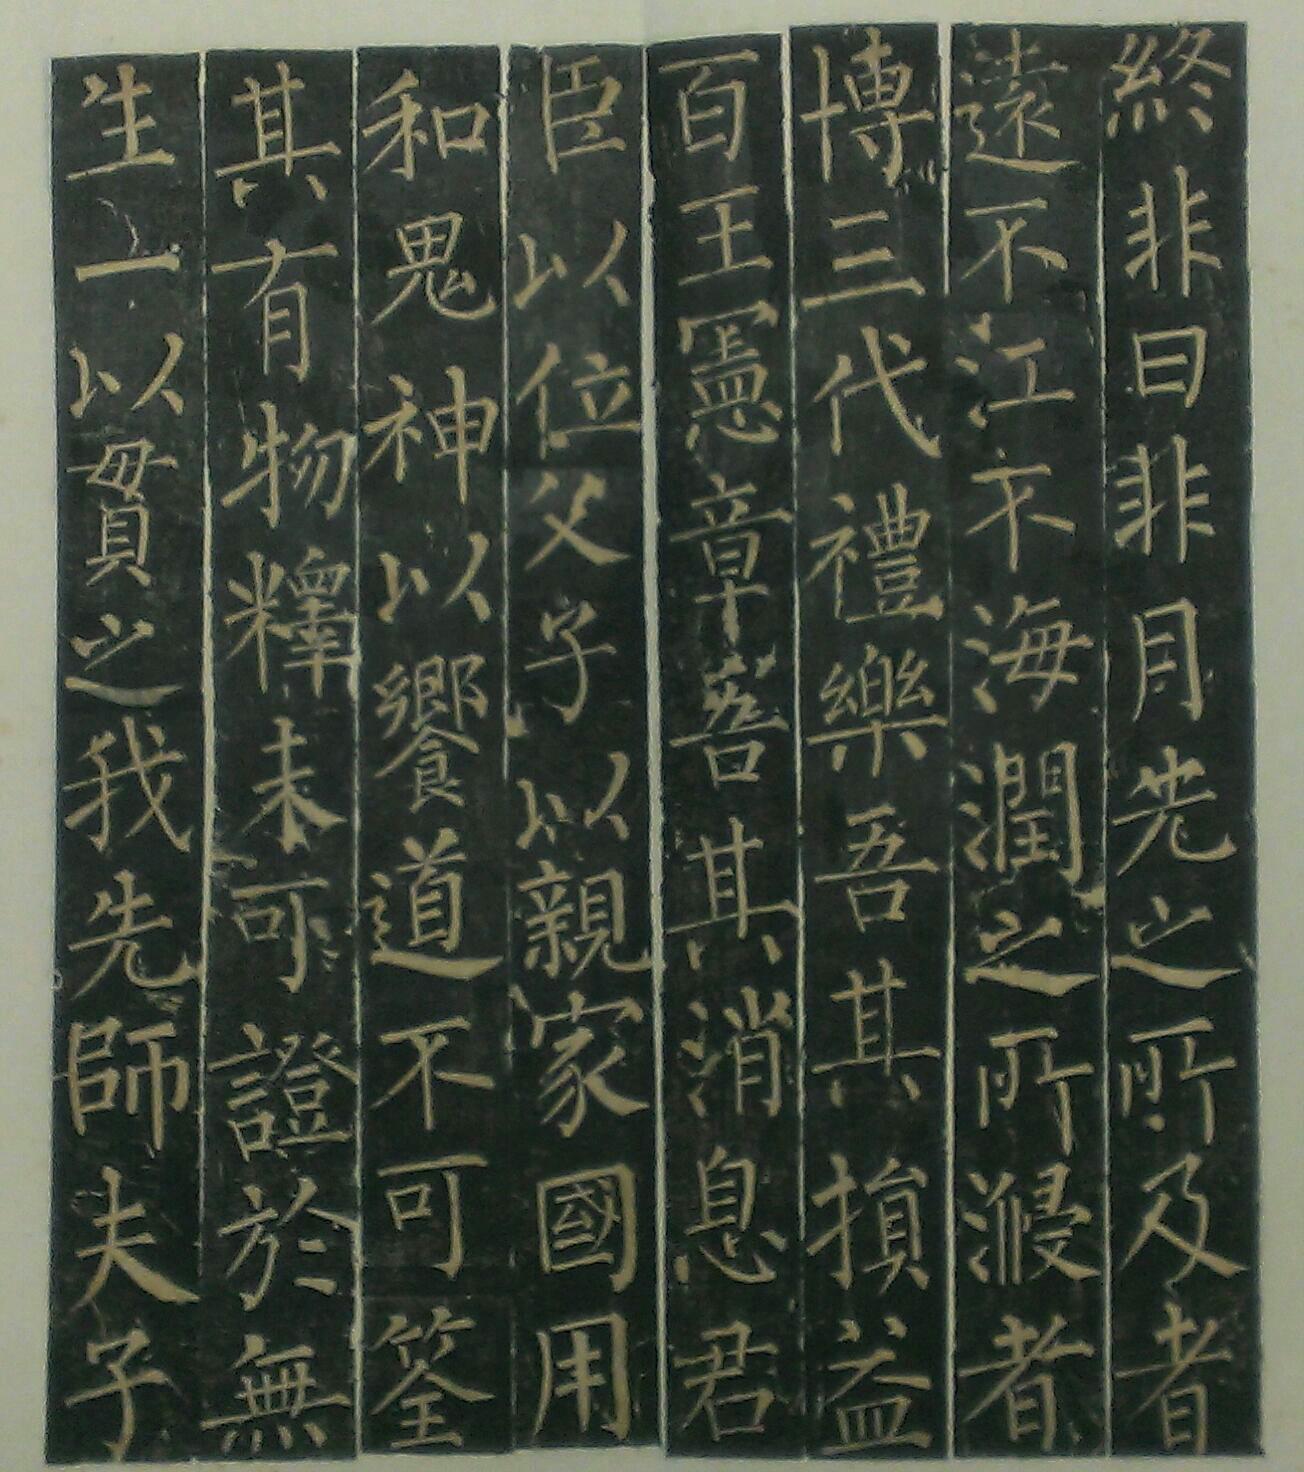 終非日非月光之所及者
遠不江不海潤之所浸者
博三代禮樂吾其損益
百王憲章吾其消息君
臣以位父子以親家國用
和鬼神以饗道不可筌
其有物釋未可證於無
生一以貫之我先師夫子